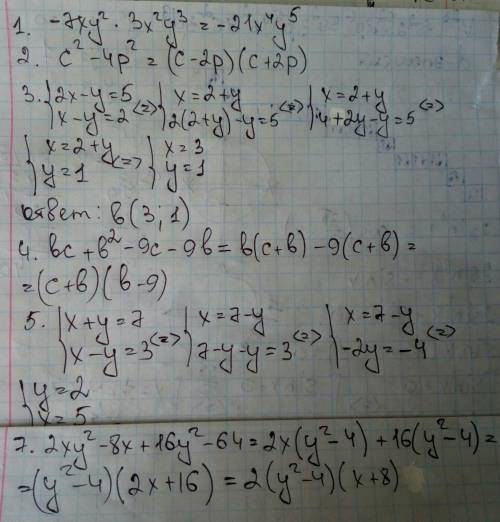 1. -7xy² · 3x²y³ = -21x⁴y⁵
2. c² - 4p² = (c-2p)(c+2p)
3. {2x-y=5 <=> {x=2+y <=> {x=2+y <=>
x-y=2 2(2+y)-y=5 4+2y-y=5
{x=2+y <=> {x=3
y=1 y=1
ответ: в(3; 1)
4. вc + в² - 9c - 9в = в(c+в) - 9(c+в) =
= (c+в)(в-9)
5. {x+y=7 <=> {x=7-y <=> {x=7-y <=>
x-y=3 7-y-y=3 -2y=-4
{y=2
x=5
7. 2xy² - 8x + 16y² - 64 = 2x(y²-4) + 16(y²-4) =
= (y²-4)(2x+16) = 2(y²-4)(x+8)